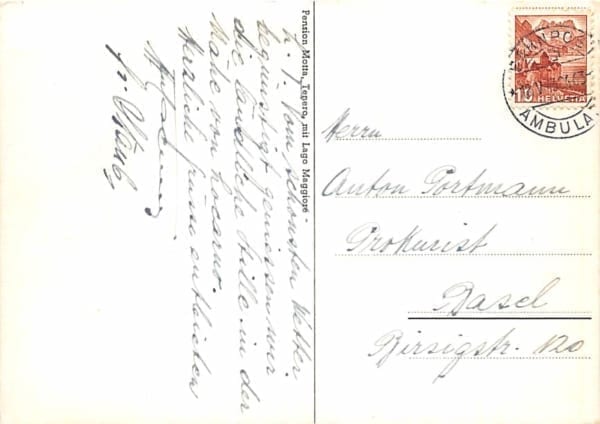 L. T. Vom schönsten Wetter
begünstigt geniessen wir
die ländliche Stille in der
Nähe von Locarno.
Herzliche Grüsse entbieten
Pension Motta, Tepero, mit Lago Maggiore
Herrn
Anton Portmann
Prokurist
Basel
Birsigstr. 120
10 HELVETIA
BAHNPOST
AMBULA